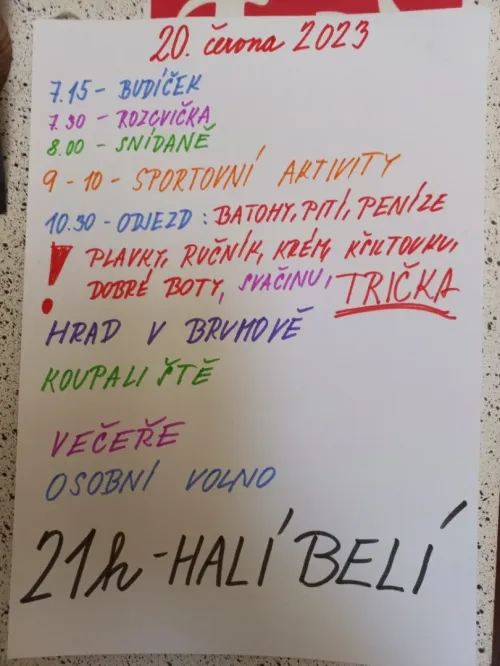 20. června 2023
7.15 - BUDÍČEK
7.30 - ROZCVIČKA
8.00 - SNÍDANĚ
9 - 10 - SPORTOVNÍ AKTIVITY
10.30 - ODJEZD : BATOHY, PITÍ, PENÍZE
! PLAVKY, RUČNÍK, KRÉM, KŠILTOVKU,
DOBRÉ BOTY, SVAČINU, TRIČKA
HRAD V BRUMOVĚ
KOUPALIŠTĚ
VEČEŘE
OSOBNÍ VOLNO
21h - HALÍ BELÍ